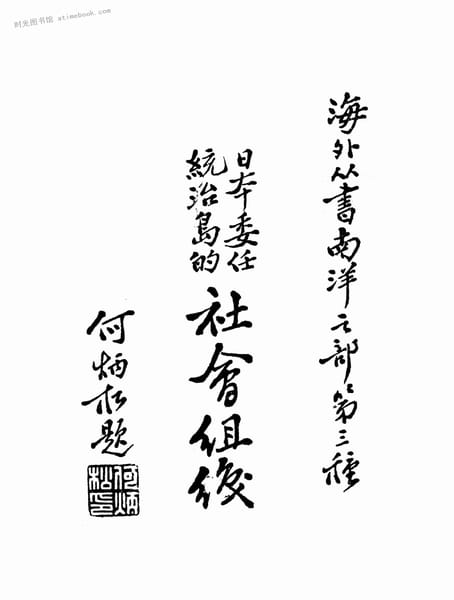 时光图书馆 atimebook.com
海外从書南洋之部第三種
日本委任
統治島的
社會组织
何炳松題
何炳
松印